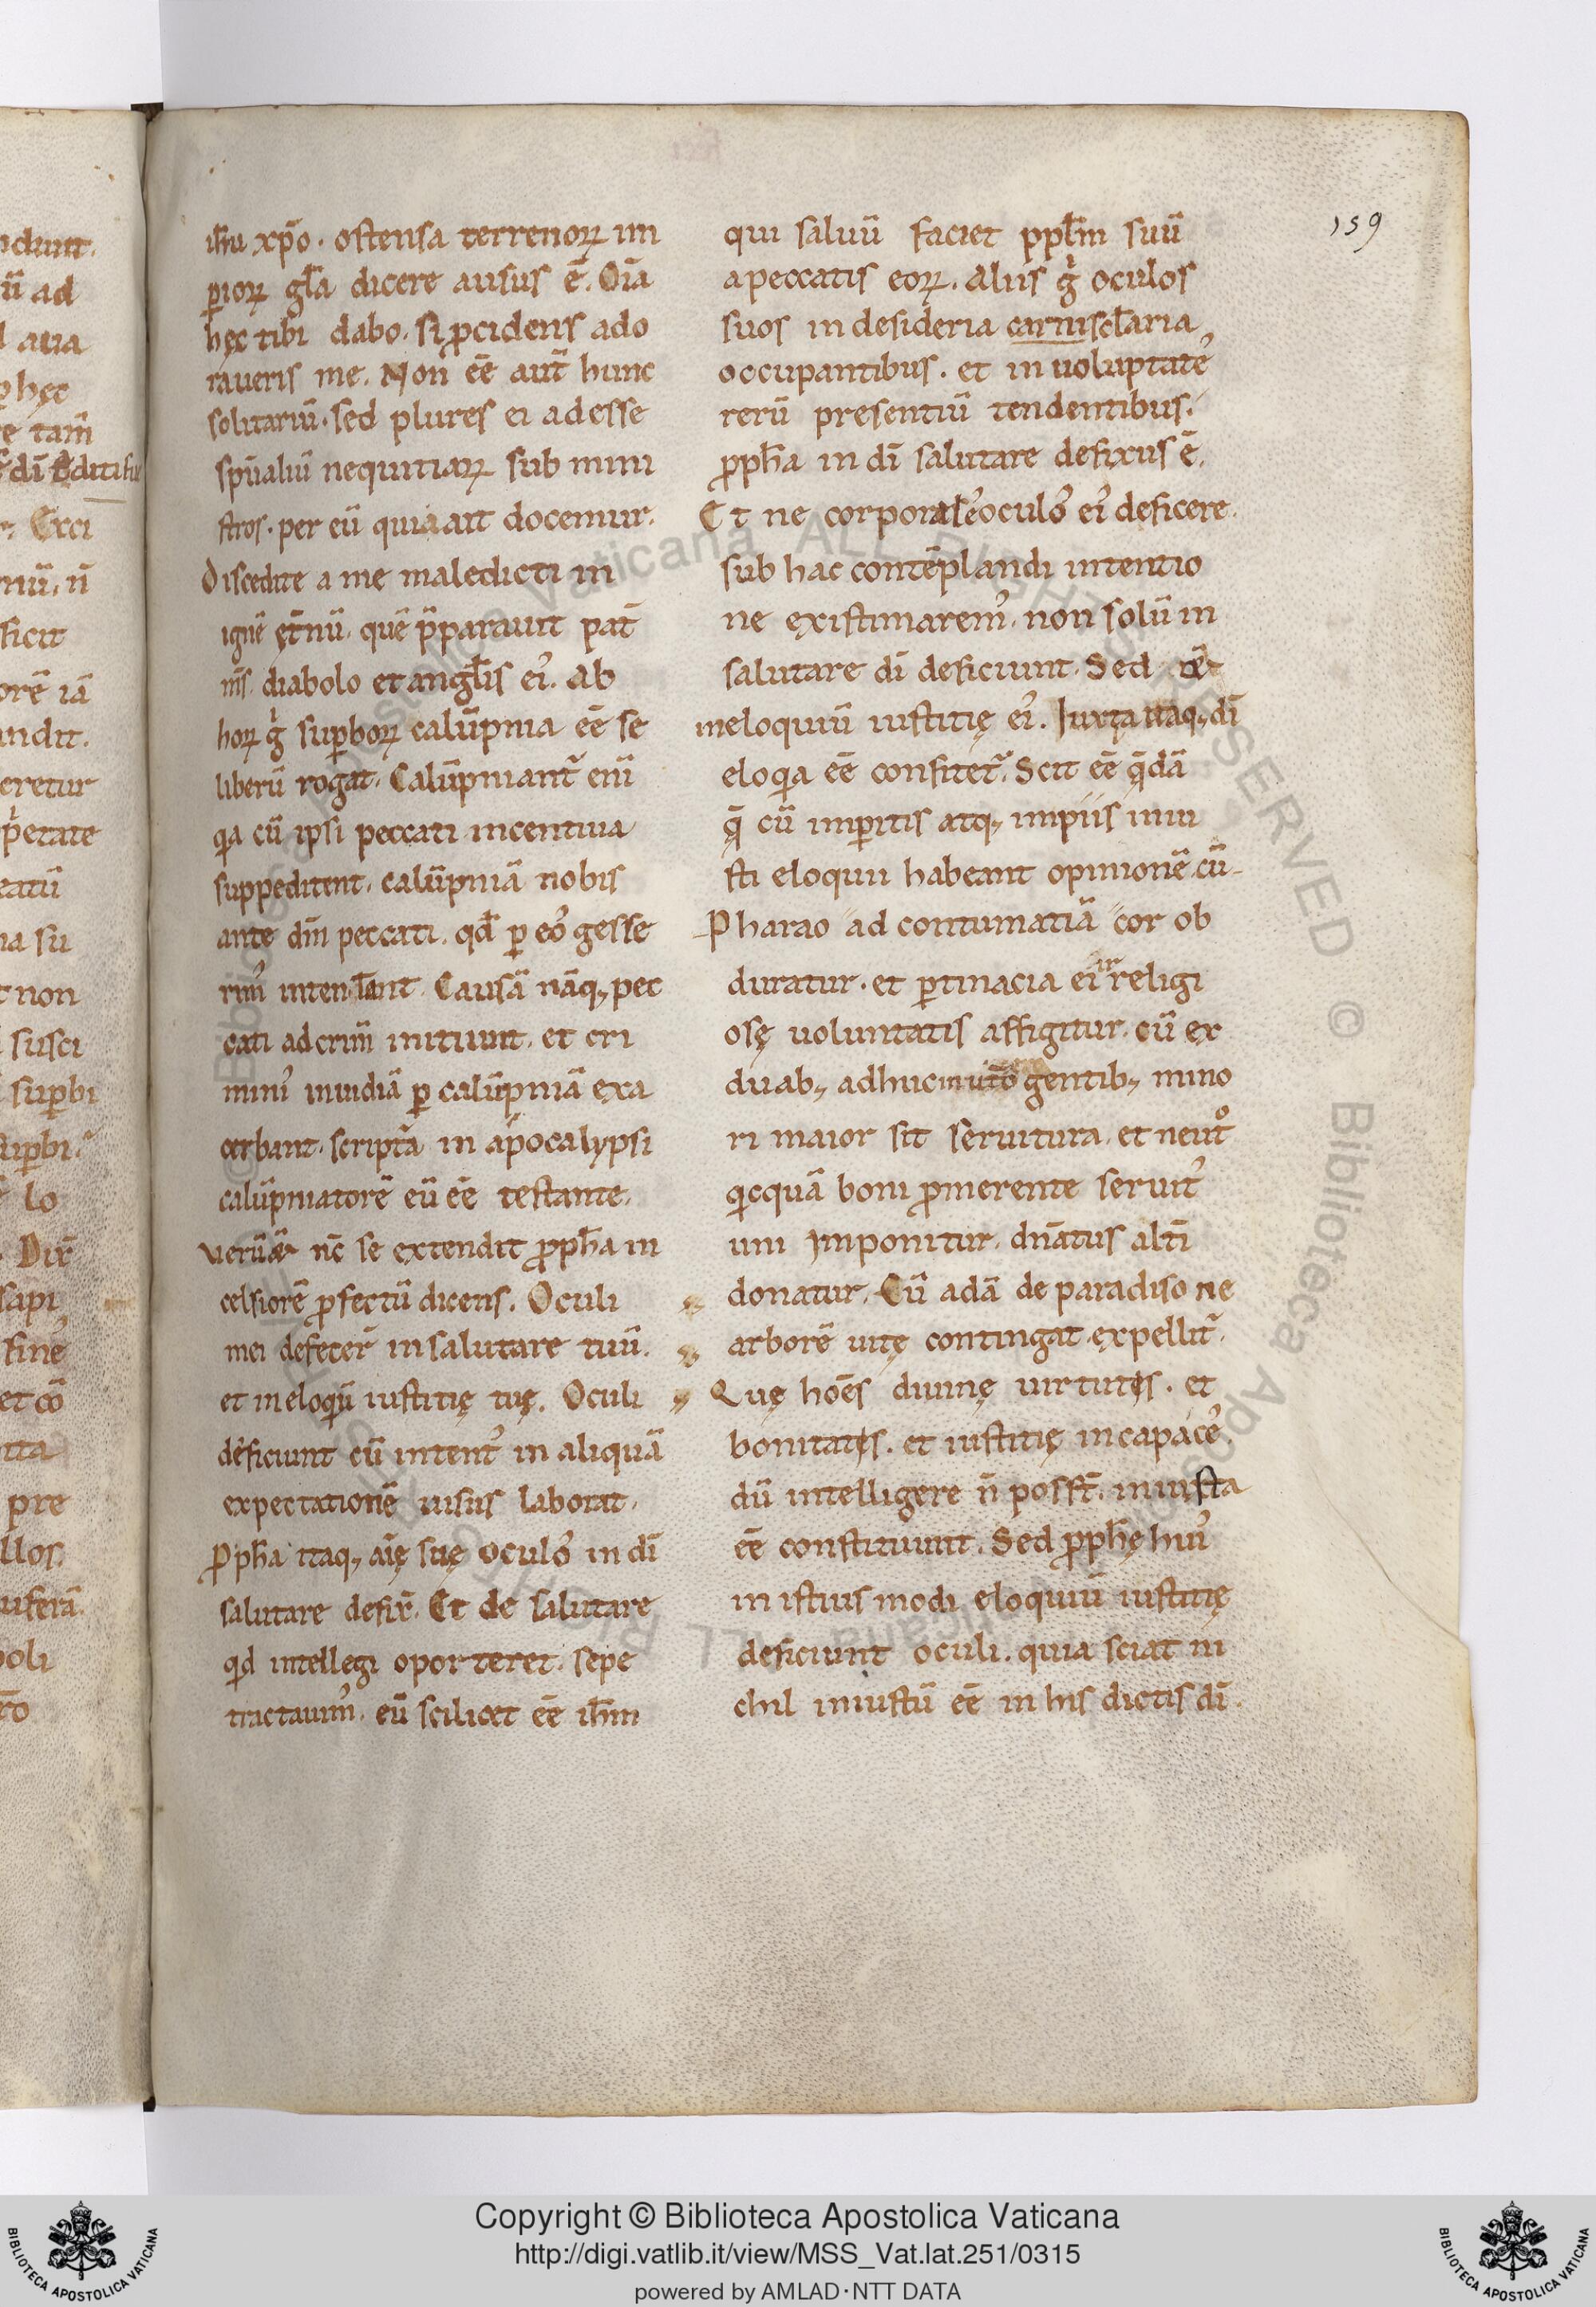 159
ih̅u xp̅o . ostensa terrenoꝝ im
ꝑioꝝ gl̅a dicere ausus ē. Oīa
hęc tibi dabo . si ꝓcidens ado
raueris me. Non ēē aut̄ hunc
solitariū . sed plures ei adesse
sp̅ualiū nequitiaꝝ sub mini
stros . per eū quia ait docemur.
Discedite a me maledicti in
ignē ęt̄nū . quē p̄parauit pat̄
m̅s diabolo et angl̅is ei᾽. Ab
hoꝝ g̍ suꝑboꝝ calūpnia ēē se
liberū rogat . Calūpniant᷑ enī
qa cū ipsi peccati incentiua
suppeditent . calūpniā nobis
ante dm̅ peccati . qd̅ ꝑ eo᾽ gesse
rim᾽ intendant . Causā nāq; pec
cati ad crim̅ initiunt . et cri
mini᾽ inuidiā ꝑ calūpniā exa
cerbant . scriptā in apocalypsi
calūpniatorē eū ēē testante.
Verū nc̄ se extendit ꝓph̅a in
celsiorē ꝓfectū dicens. Oculi
mei defecer̄ in salutare tuū.
et in eloqiū iustitię tuę. Oculi
deficiunt cū intent᾽ in aliquā
expectationē uisus laborat.
Ꝓph̅a itaq; aīę suę oculo᾽ in dī
salutare defix̄. Et de salutare
qid intellegi oporteret . sepe
tractauim᾽. eū scilicet ēē ih̅m
qui saluū faciet ppl̅m suū
a peccatis eoꝝ . Aliis g̍ oculos
suos in desideria carnis cl̅aria
occupantibus . et in uoluptate᾽
rerū presentiū tendentibus.
ꝓph̅a in dī salutare defixus ē.
Et ne corporale᾽ oculo᾽ ei᾽ deficere
sub hac contēplandi intentio
ne existimarem᾽. non solū in
salutare dī deficiunt . Sed
in eloquiū iustitię ei᾽. Iuxta itaq; dī
eloqia ēē confitet᷑. Scit ēē q̄dā
q̄ cū imꝑitis atq; impiis iniu
sti eloquii habeant opinionē . cū
Pharao ad contumatiā cor ob
duratur . et ꝑtinacia ei irreligi
osę uoluntatis affigitur . cū ex
duab; adhuc in ut̄o gentib; mino
ri maior sit seruitura . et neut᷑o
qicquā boni ꝓmerente seruit᾽
uni imponitur . dn̄atus alt̄i
donatur . Cū adā de paradiso ne
arborē uitę contingat . expellit᷑.
Quę hoēs diuinę uirtutis . et
bonitatis . et iustitię incapace᾽
dū intelligere n̄ posst̄ . iniusta
ēē constituunt . Sed ꝓph̅ę hui᾽
in istius modi eloquiū iustitię
deficiunt oculi . quia sciat ni
chil iniustū ēē in his dictis dī .
Copyright © Biblioteca Apostolica Vaticana
http://digi.vatlib.it/view/MSS_Vat.lat.251/0315
powered by AMLAD·NTT DATA